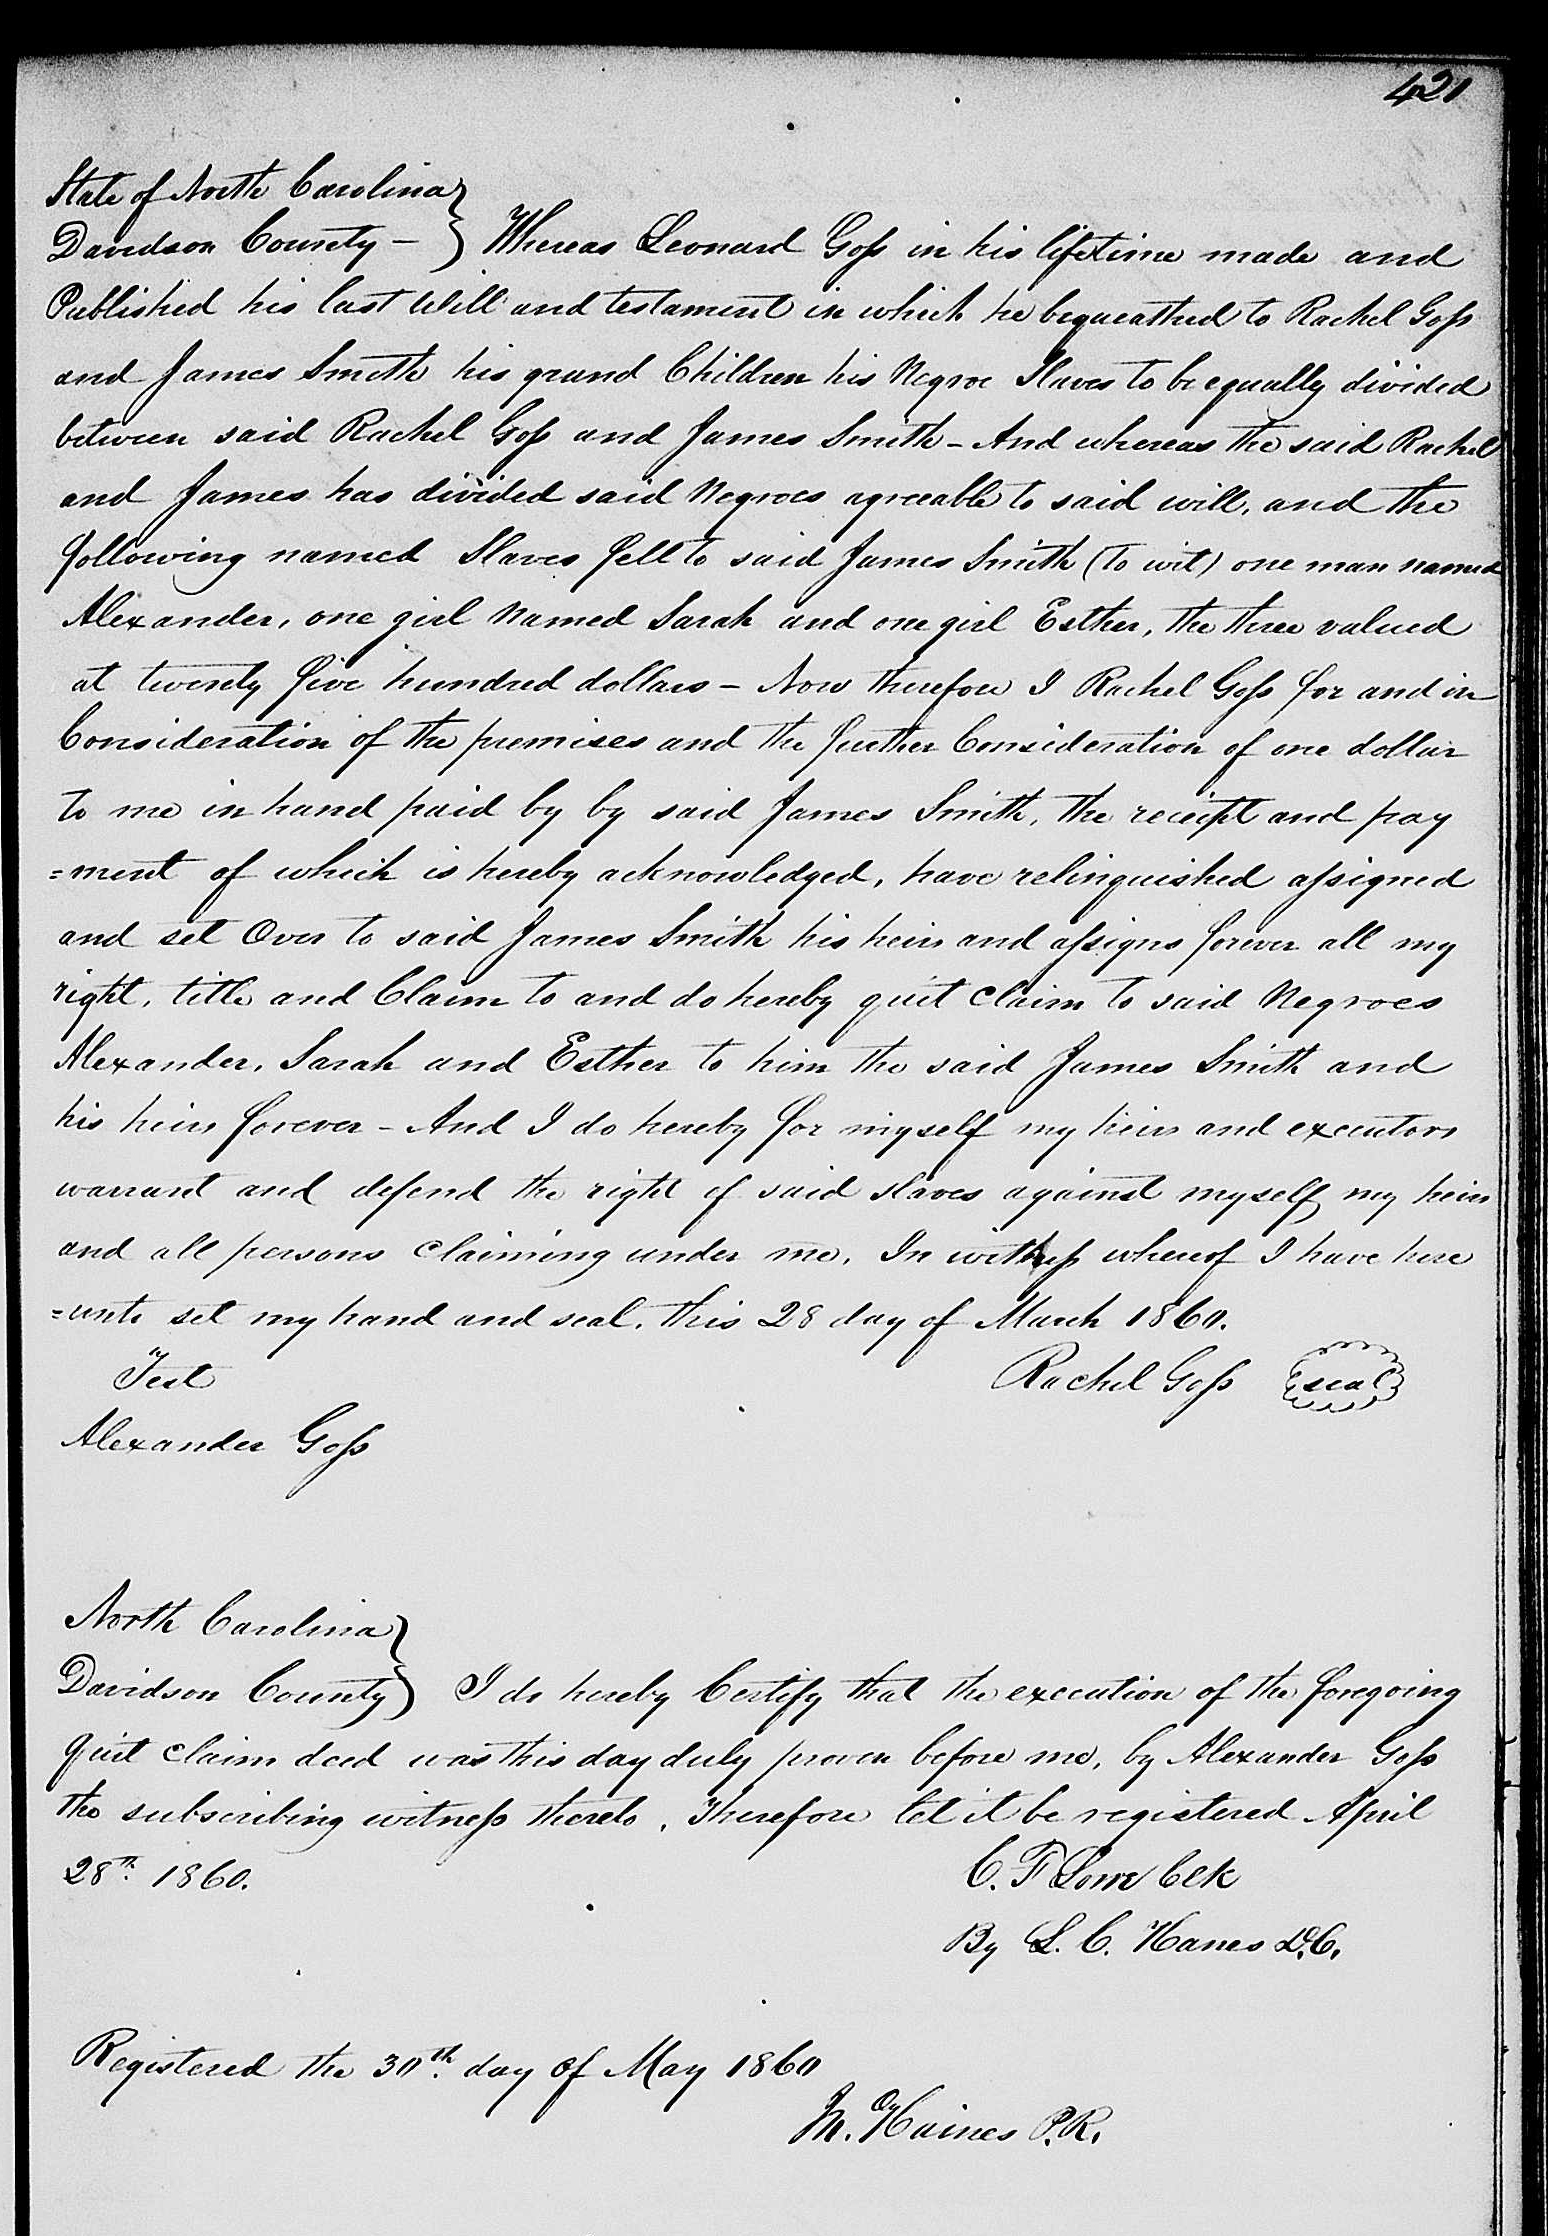 421
State of North Carolina
Davidson County – Whereas Leonard Goss in his lifetime made and
Published his last Will and testament in which he bequeathed to Rachel Goss
and James Smith his grand Children his Negroe Slaves to be equally divided
between said Rachel Goss and James Smith – And whereas the said Rachel
and James has divided said Negroes agreeable to said will, and the
following named Slaves fell to said James Smith (to wit) one man named
Alexander, one girl Named Sarah and one girl Esther, the three valued
at twenty five hundred dollars – Now therefore I Rachel Goss for and in
Consideration of the premises and the further Consideration of one dollar
to me in hand paid by by said James Smith, the receipt and pay
=ment of which is hereby acknowledged, have relinquished assigned
and set Over to said James Smith his heirs and assigns forever all my
right, title and Claim to and do hereby quit claim to said Negroes
Alexander, Sarah and Esther to him the said James Smith and
his heirs forever – And I do hereby for myself my heirs and executors
warrant and defend the right of said slaves against myself my heirs
and all persons claiming under me, In witness whereof I have here
=unto set my hand and seal, this 28 day of March 1860.
Test Rachel Goss seal
Alexander Goss
North Carolina
Davidson County I do hereby Certify that the execution of the foregoing
quit claim deed was this day duly proven before me, by Alexander Goss
the subscribing witness thereto, Therefore let it be registered April
28th. 1860. C. F Lowe Clk
By L. C. Hanes D.C.
Registered the 30th. day of May 1860
M. Haines P.R.